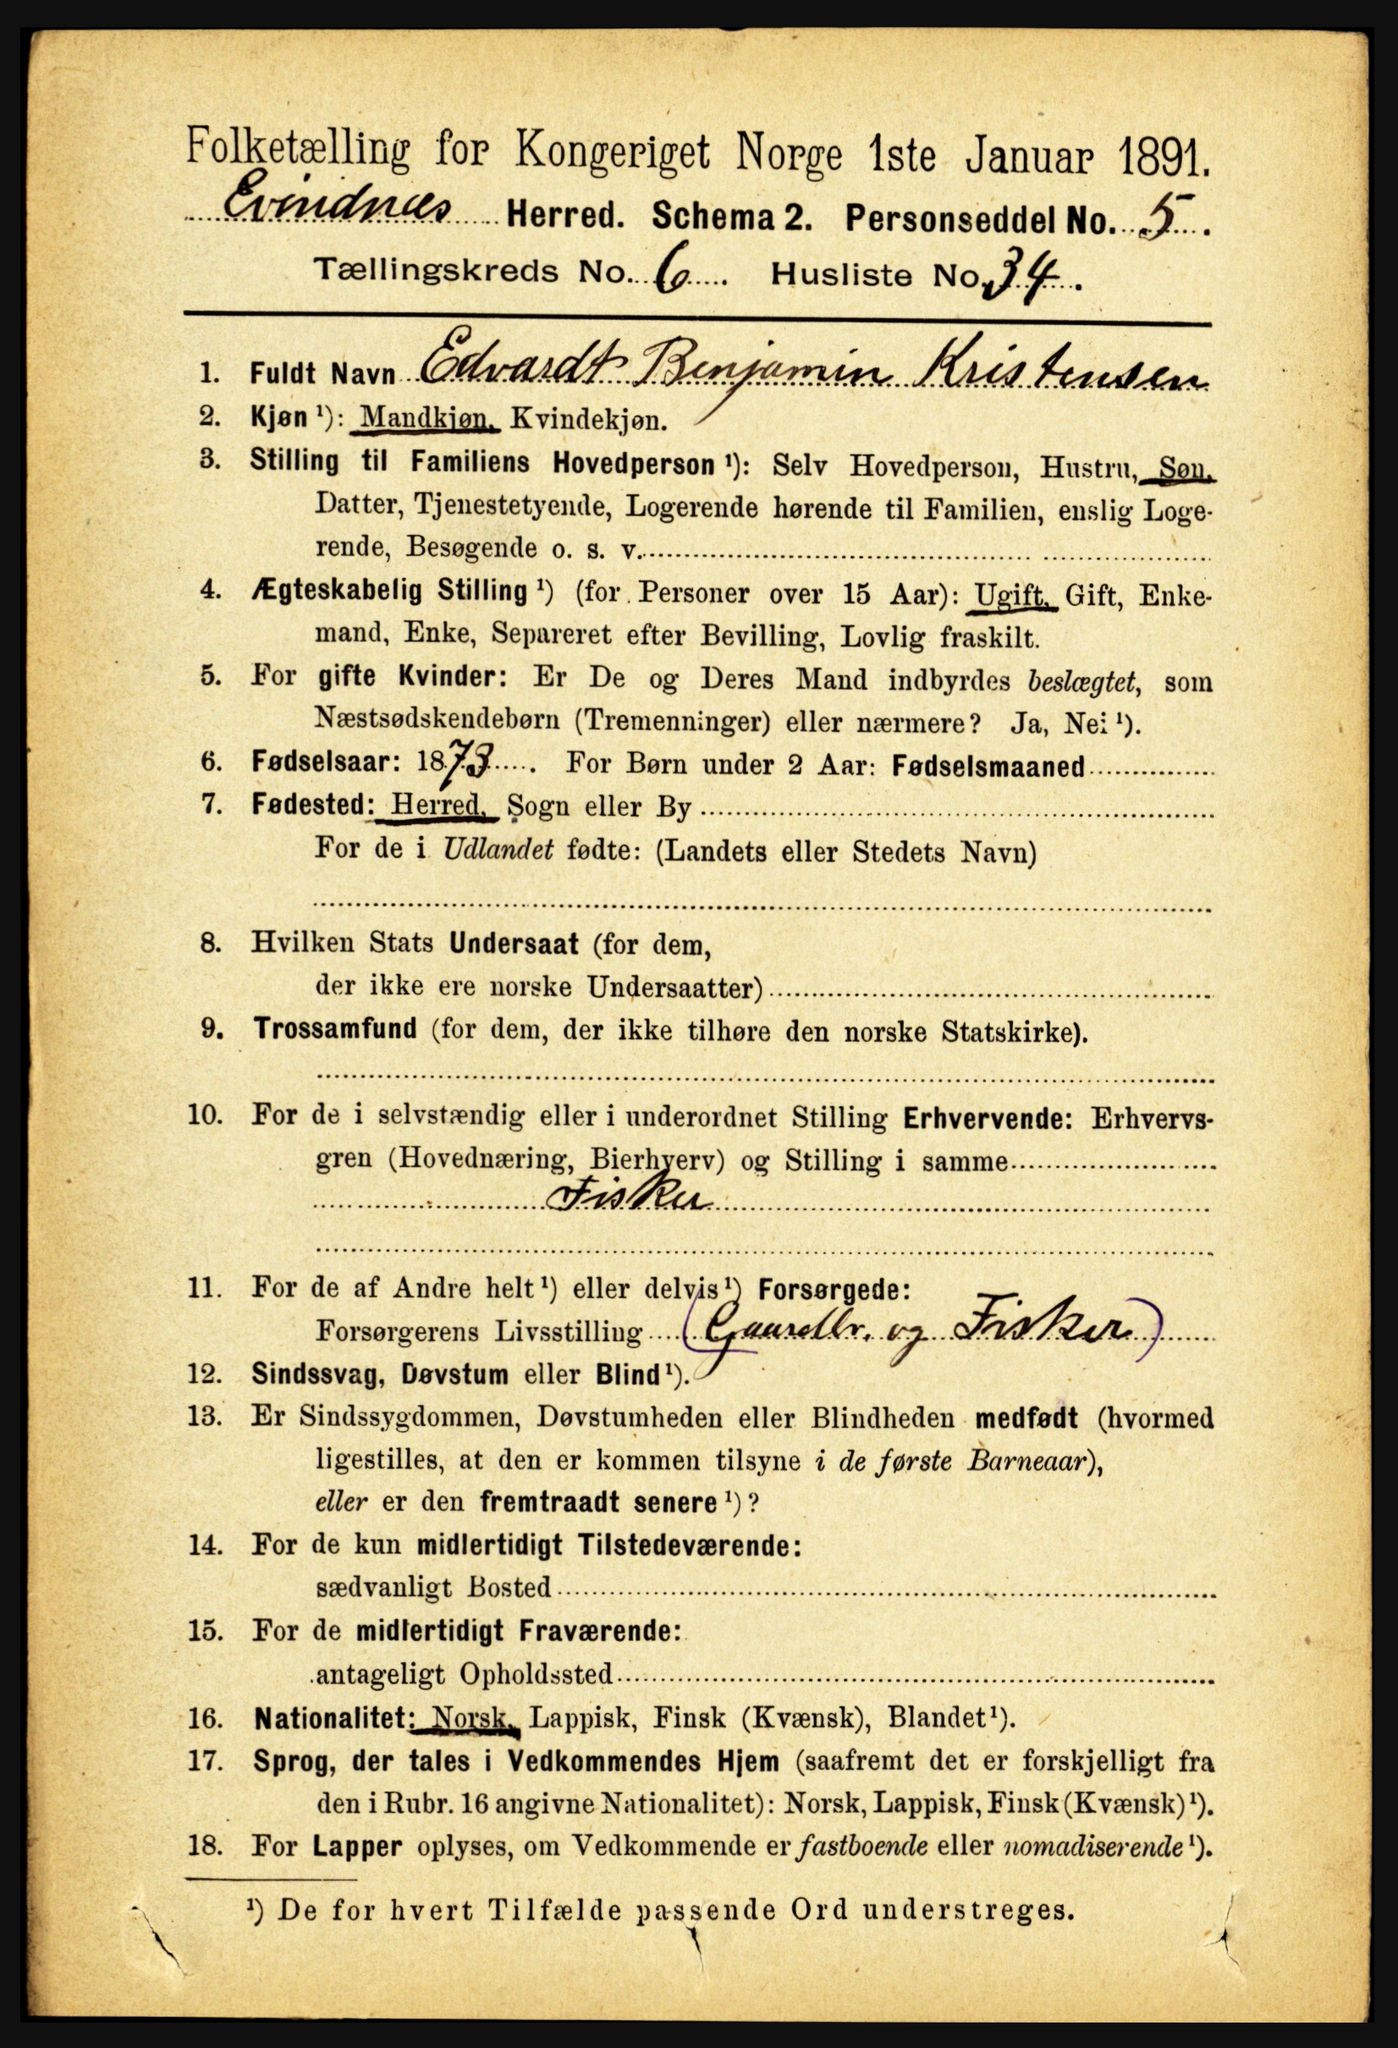 Folketælling for Kongeriget Norge 1ste Januar 1891.
Evindnæs Herred. Schema 2. Personseddel No. 5.
Tællingskreds No. 6. Husliste No. 34.
1. Fuldt Navn Edvardt Benjamin Kristensen
2. Kjøn ¹): Mandkjøn. Kvindekjøn.
3. Stilling til Familiens Hovedperson ¹): Selv Hovedperson, Hustru, Søn,
Datter, Tjenestetyende, Logerende hørende til Familien, enslig Loge-
rende, Besøgende o. s. v.
4. Ægteskabelig Stilling ¹) (for Personer over 15 Aar): Ugift, Gift, Enke-
mand, Enke, Separeret efter Bevilling, Lovlig fraskilt.
5. For gifte Kvinder: Er De og Deres Mand indbyrdes beslægtet, som
Næstsødskendebørn (Tremenninger) eller nærmere? Ja, Nei ¹).
6. Fødselsaar: 1873. For Børn under 2 Aar: Fødselsmaaned
7. Fødested: Herred, Sogn eller By
For de i Udlandet fødte: (Landets eller Stedets Navn)
8. Hvilken Stats Undersaat (for dem,
der ikke ere norske Undersaatter)
9. Trossamfund (for dem, der ikke tilhøre den norske Statskirke).
10. For de i selvstændig eller i underordnet Stilling Erhvervende: Erhvervs-
gren (Hovednæring, Bierhverv) og Stilling i samme
Fisker
11. For de af Andre helt ¹) eller delvis ¹) Forsørgede:
Forsørgerens Livsstilling (Gaardbr. og Fisker)
12. Sindssvag, Døvstum eller Blind ¹).
13. Er Sindssygdommen, Døvstumheden eller Blindheden medfødt (hvormed
ligestilles, at den er kommen tilsyne i de første Barneaar),
eller er den fremtraadt senere ¹)?
14. For de kun midlertidigt Tilstedeværende:
sædvanligt Bosted
15. For de midlertidigt Fraværende:
antageligt Opholdssted
16. Nationalitet: Norsk, Lappisk, Finsk (Kvænsk), Blandet ¹).
17. Sprog, der tales i Vedkommendes Hjem (saafremt det er forskjelligt fra
den i Rubr. 16 angivne Nationalitet): Norsk, Lappisk, Finsk (Kvænsk) ¹).
18. For Lapper oplyses, om Vedkommende er fastboende eller nomadiserende ¹).
¹) De for hvert Tilfælde passende Ord understreges.